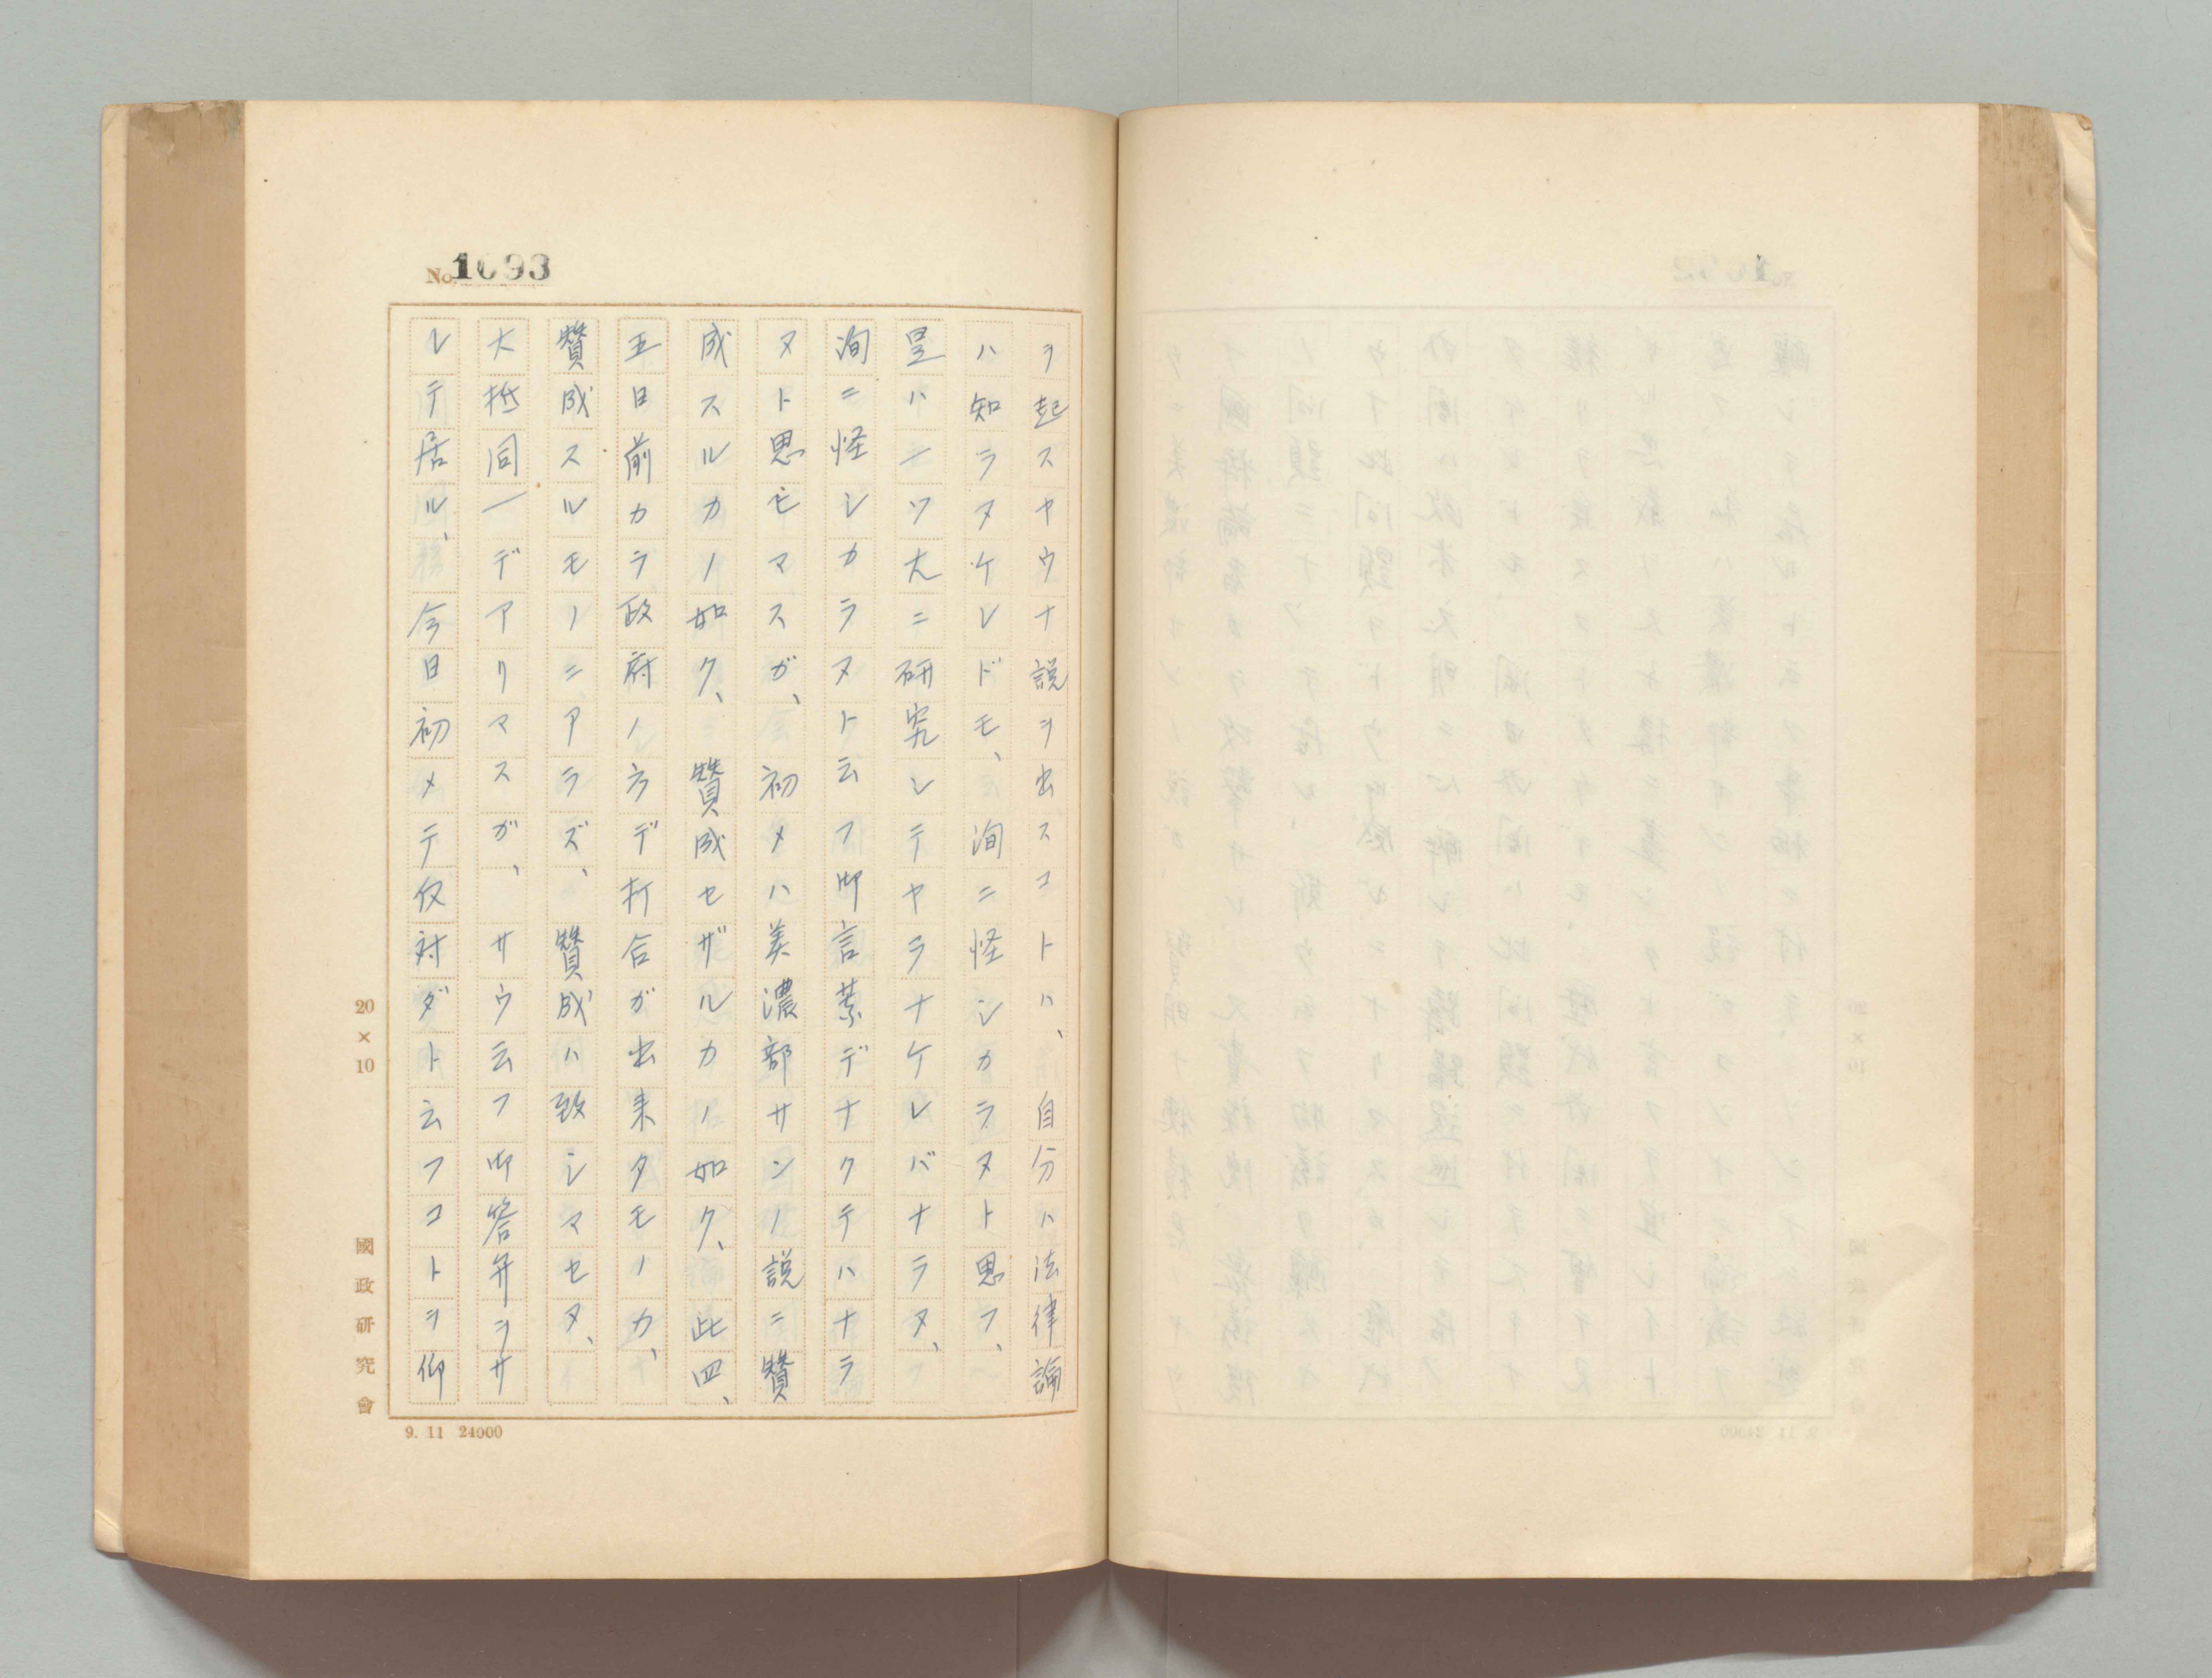 No. 1093
ヲ起スヤウナ説ヲ出スコトハ、自分ハ法律論
ハ知ラヌケレドモ、洵ニ怪シカラヌト思フ、
是ハ一ツ大ニ研究シテヤラナケレバナラヌ、
洵ニ怪シカラヌト云フ御言葉デナクテハナラ
ヌト思ヒマスガ、初メハ美濃部サンノ説ニ賛
成スルカノ如ク、賛成セザルカノ如ク、此四、
五日前カラ政府ノ方デ打合ガ出来タモノカ、
賛成スルモノニアラズ、賛成ハ致シマセヌ、
大抵同一デアリマスガ、サウ云フ御答弁ヲサ
レテ居ル、今日初メテ反対ダト云フコトヲ仰
20×10
國政研究會
9. 11 24000